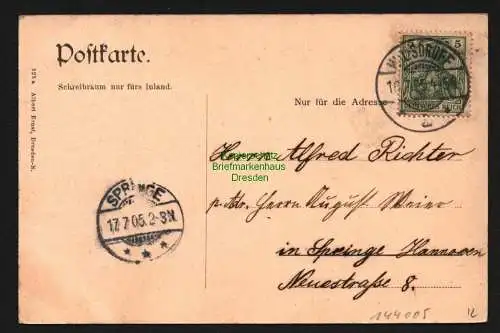 Postkarte.
Schreibraum nur fürs Inland.
Nur für die Adresse
5
WILSDRUFF
REICH
Herrn Alfred Richter
Briefmarkenhaus
Dresden
p. Adr. Herrn August Meier
in Springe Hannover
Neuestraße 8.
SPRINGE
17.7.05.2-3N.
124a Albert Ernst, Dresden-N.
144005